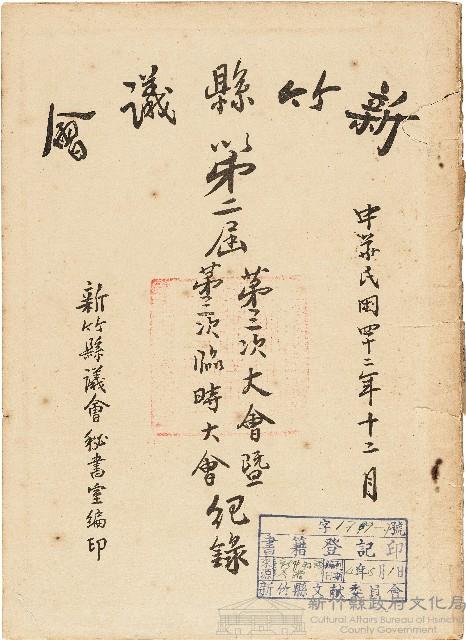 新竹縣議會
中華民國四十二年十二月
第二屆
第三次大會暨
第三次臨時大會
紀錄
新竹縣議會秘書室編印
字 號
書籍登記印
年5月1日
新竹縣文獻委員會
新竹縣政府文化局
Cultural Affairs Bureau of Hsinchu
County Government